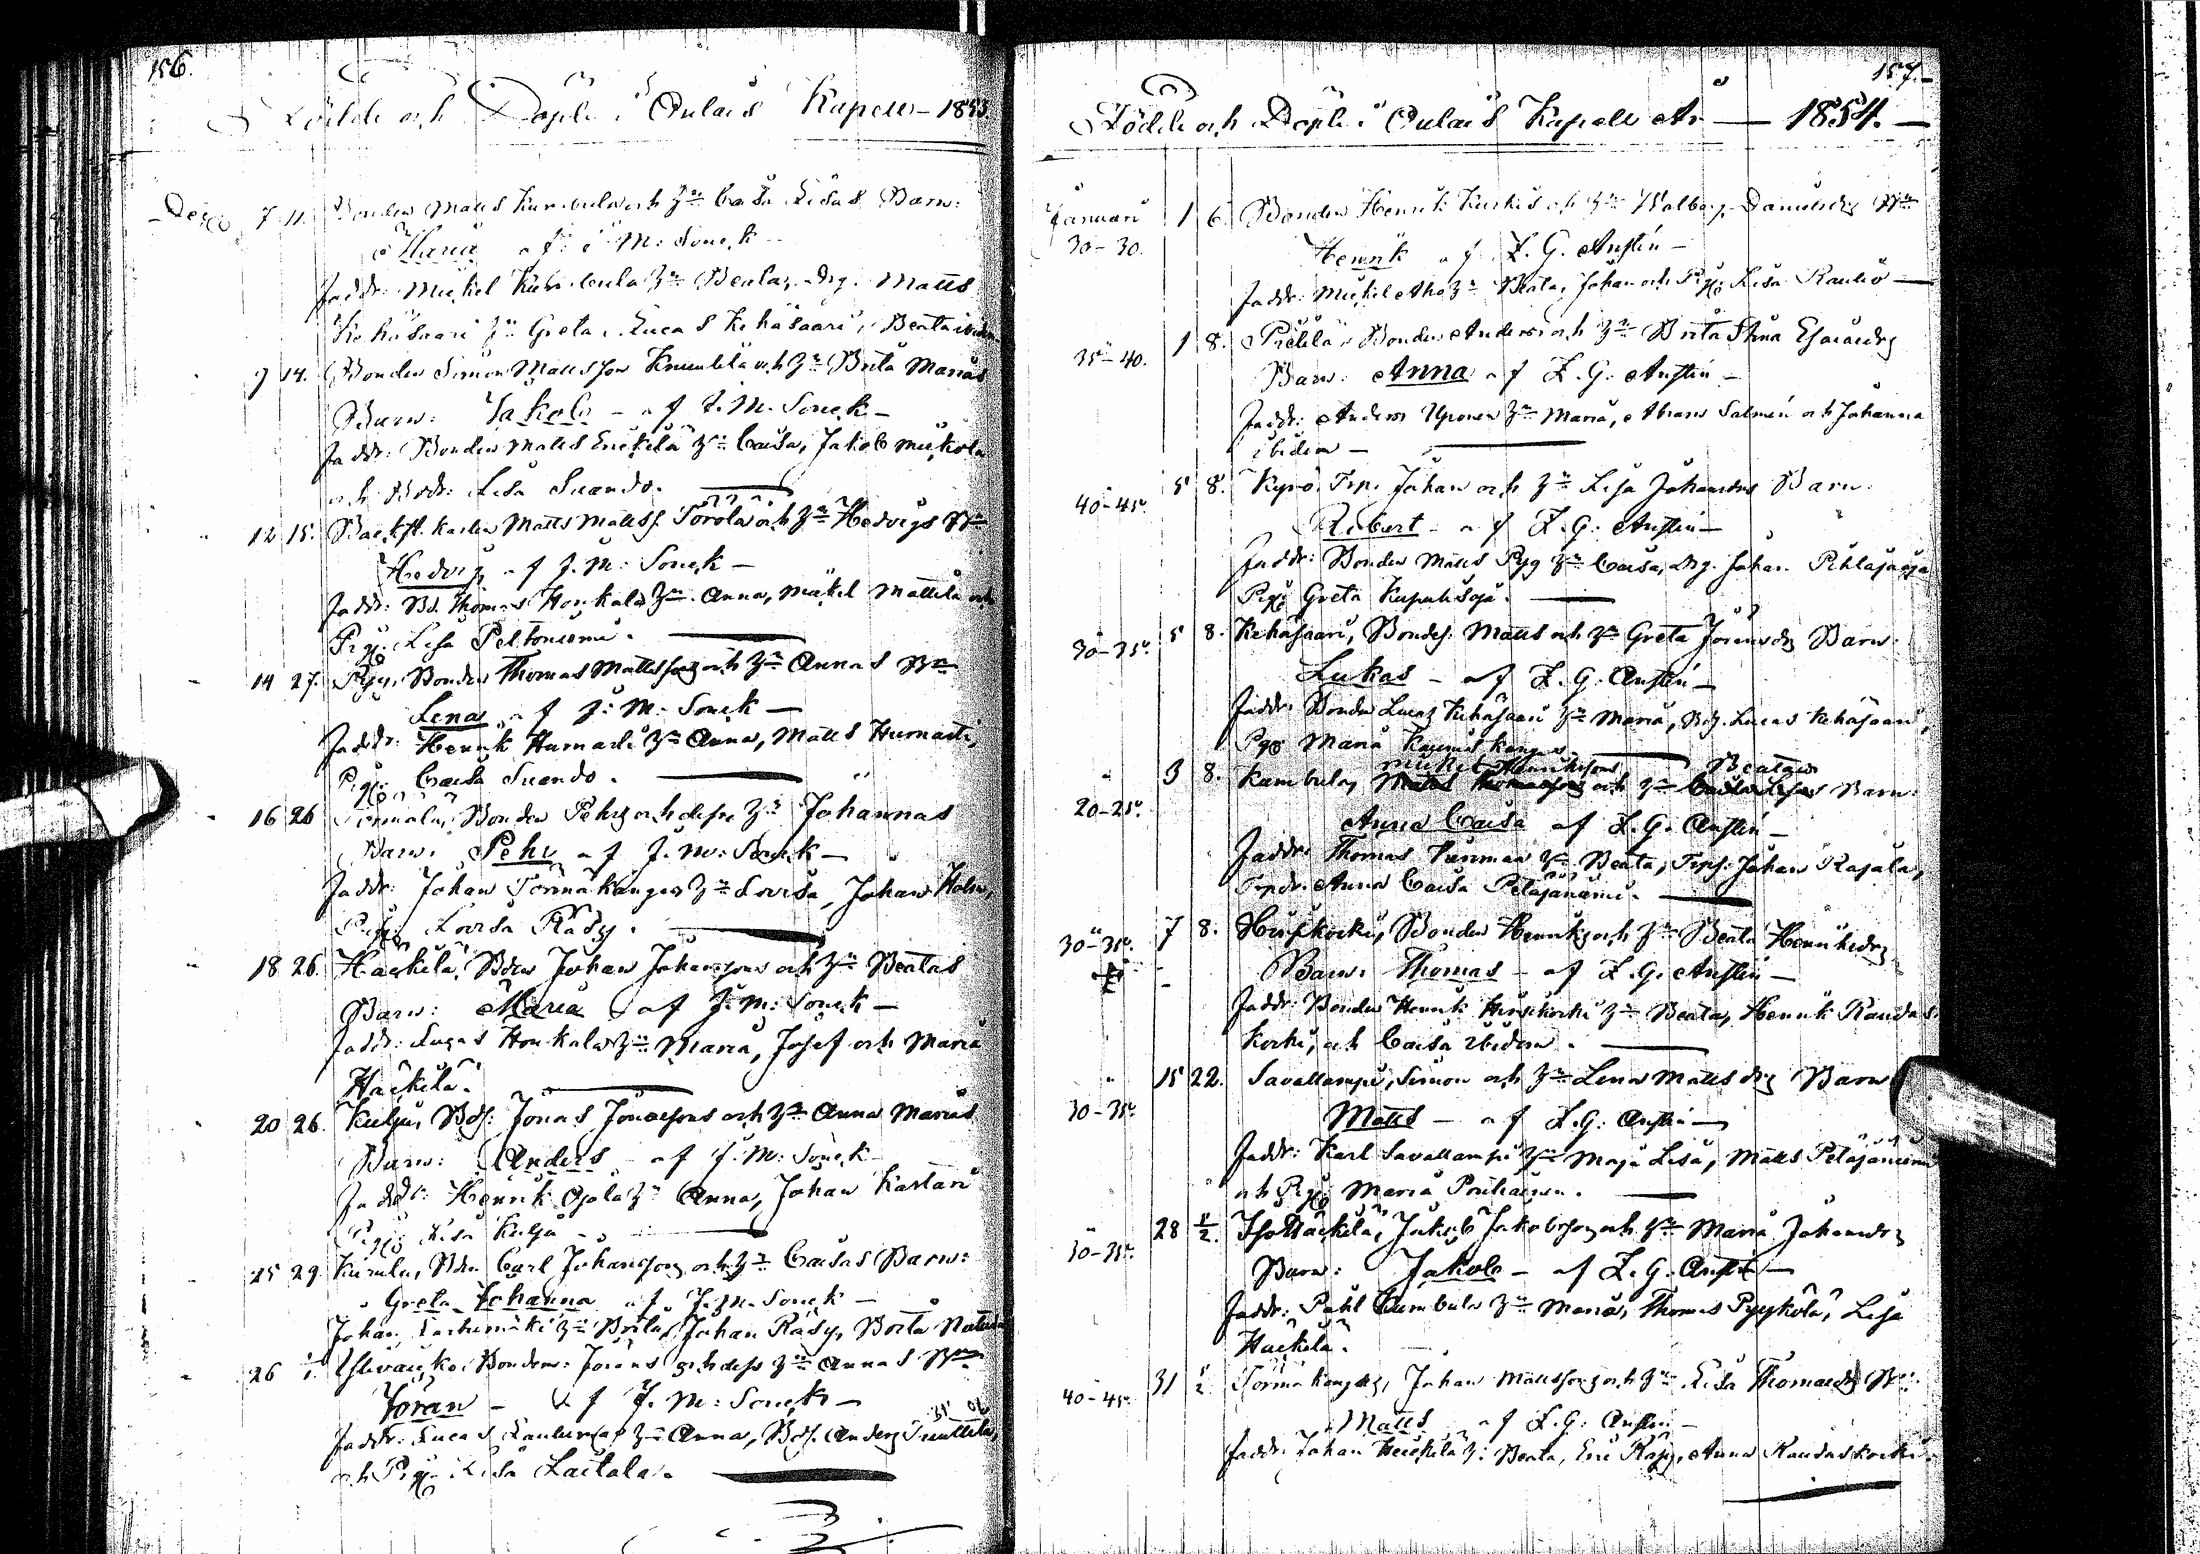 156.
Födde och Döpte i Oulais Kapell - 1853
Dec. 7 11. Bonden Matts Kumbula och H:u Caisa Lisas Barn:
Maria af J. M: Sonck
Faddr: Mickel Kumbula H:u Beata, Dr. Matts
Kehäsaari H:u Greta, Lucas Kehäsaari, Beata ibidem
9 14. Bonden Simon Mattsson och H:u Brita Marias
Barn: Jakob - af J. M. Sonck -
Faddr: Bonden Matts Erickilä H:u Caisa, Jakob Mickola
och Lisa Suando.
12 15. Matts Matts. Torola och H:u Hedvigs B:n
Hedvig af J. M: Sonck -
Faddr: Bd. Thomas Honkala H:u Anna, Mickel Mattila och
Pig. Lisa Peltoniemi.
14 27. Pyy, Bonden Thomas Mattsson och H:u Annas B:n
Lena af J: M: Sonck -
Faddr: Henrik Humasti H:u Anna, Matts Humasti,
Pig. Caisa Suando.
16 26 Bonden Pehr och dess H:u Johannas
Barn: Pehr af J. M: Sonck -
Faddr: Johan Törmäkangas H:u Lovisa, Johan Holm,
Pig. Lovisa Räsy.
18 26. Haekilä, Bden Johan Johanssons och H:u Beatas
Barn: Maria af J. M: Sonck -
Faddr: Lucas Honkala H:u Maria, Josef och Maria
Haekilä.
20 26. Kulju, Bds. Jonas Jonassons och H:u Anna Marias
Barn: Anders - af J. M: Sonck -
Faddr: Henrik Ojala H:u Anna, Johan Kastari
Pig. Lisa Kulju
25 29. Bden Carl Johansson och H:u Caisas Barn:
Greta Johanna af J. M. Sonck -
Johan H:u Brita, Johan Räsy, Brita
26 1/1 Bonden Jörans och dess H:u Annas B:n
Jöran - af J. M: Sonck -
Faddr: Lucas H:u Anna, Bds. Anders
och Pig. Lisa Laitala.
157.-
Födde och Döpte i Oulais Kapell År - 1854. -
Januari 1 6. Bonden Henrik Kuckis och H:u Walborg Danielsdr B:n
30-30.
Henrik af L. G. Anstén -
Faddr: Mickel Aho H:u Beata, Johan och Pig. Lisa Rautio -
35-40. 1 8. Bonden Anders och H:u Brita Stina Esaiasdr
Barn: Anna af L. G: Anstén -
Faddr: Anders H:u Maria, Abram Salmén och Johanna
ibidem -
40-45. 5 8. Kyrö, Johan och H:u Lisa Johansdrs Barn.
Robert - af L. G: Anstén -
Faddr: Bonden Matts Pyy H:u Caisa, Dr. Johan Pihlajaoja
Pig. Greta Kupulisoja.
30-35. 5 8. Kehäsaari, Bondes. Matts och H:u Greta Jöransdr Barn:
Lukas - af L. G. Anstén -
Faddr: Bonden Lucas Kehäsaari H:u Maria, Bds. Lucas Kehäsaari,
Pig. Maria
Mickel Henrikssons Beatas
3 8. Kumbula, Matts Thomassons och H:u Caisa Lisas Barn:
20-25.
Anna Caisa af L. G. Anstén -
Faddr: Thomas H:u Beata, Johan Rajala,
Anna Caisa Petäjäniemi.
30-35. 7 8. Hirsikorki, Bonden Henriks och H:u Beata Henriksdr
Barn: Thomas - af L. G. Anstén -
Faddr: Bonden Henrik Hirsikorki H:u Beata, Henrik Raudas
korki, och Caisa ibidem.
15 22. Savallampi, Simon och H:u Lena Mattsdrs Barn
30-35.
Matts - af L. G: Anstén -
Faddr: Karl Savallampi H:u Maja Lisa, Matts Petäjäniemi
och Pig. Maria
30-35. 28 2/2. Isohäckilä, Jakob Jakobsson och H:u Maria Johansdr
Barn: Jakob - af L. G. Anstén -
Faddr: Pähl Kumbula H:u Maria, Thomas Pyykölä, Lisa
Haekilä.
40-45. 31 5/2. Törmäkangas, Johan Mattsson och H:u Lisa Thomasdr B:n
Matts af L. G: Anstén -
Faddr: Johan Heickilä H: Beata, Eric Räsy, Anna Raudaskorki.